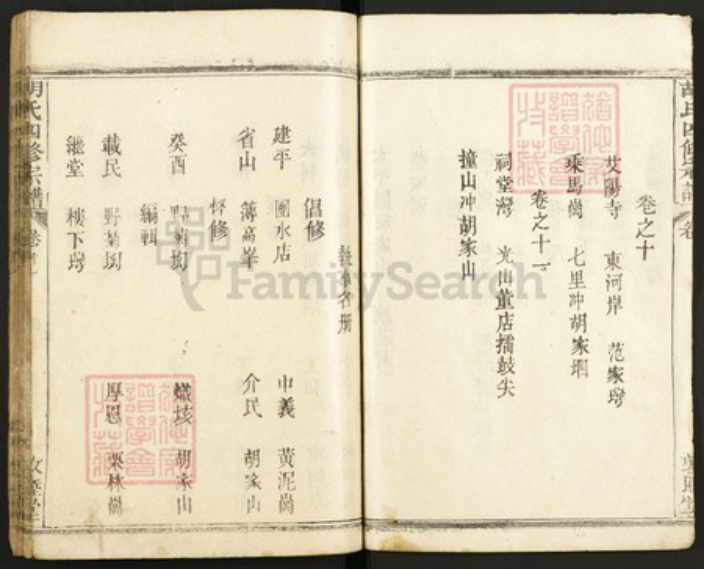 卷之十
艾陽寺 東河岸 范家塆
乘馬崗 七里冲胡家堋
卷之十一
祠堂灣 光山董店擂鼓尖
撞山冲胡家山
執事名册
倡修
建平 圍水店 中義 黃泥崗
省山 簿高峯 介民 胡家山
督修
癸酉 野菊坳 熾垓 胡家山
編輯
載民 野菊坳 厚恩 栗林崗
繼堂 樓下塆
胡氏四修宗譜 卷首
敦睦堂
胡氏四修宗譜
FamilySearch